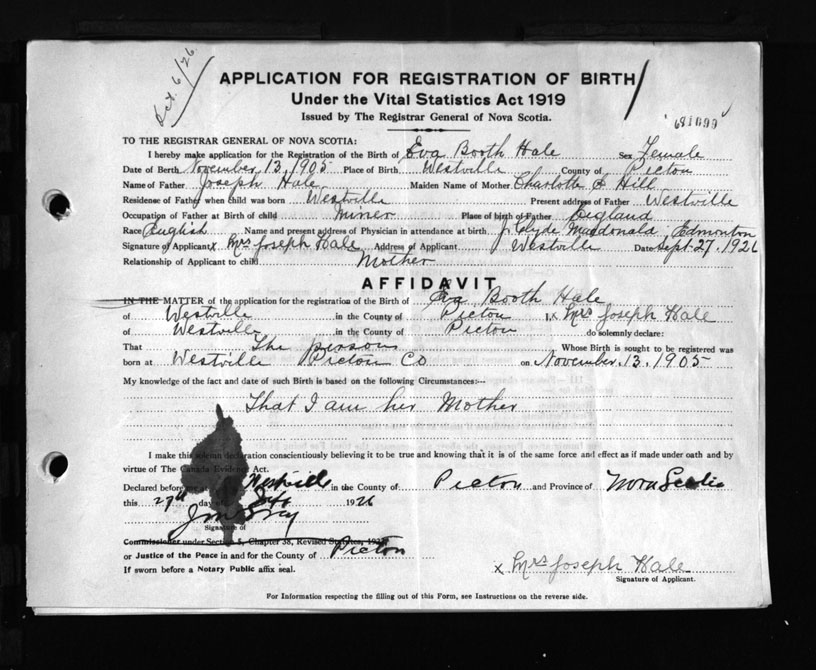 Oct. 6/26
APPLICATION FOR REGISTRATION OF BIRTH
Under the Vital Statistics Act 1919
Issued by The Registrar General of Nova Scotia.
TO THE REGISTRAR GENERAL OF NOVA SCOTIA:
I hereby make application for the Registration of the Birth of Eva Booth Hale Sex Female
Date of Birth November, 13, 1905 Place of Birth Westville County of Picton
Name of Father Joseph Hale Maiden Name of Mother Charlotte Hill
Residence of Father when child was born Westville Present address of Father Westville
Occupation of Father at Birth of child Miner Place of birth of Father England
Race English Name and present address of Physician in attendance at birth J. Clyde Macdonald, Edmonton
Signature of Applicant x Mrs Joseph Hale Address of Applicant Westville Date Sept. 27, 1926
Relationship of Applicant to child Mother
AFFIDAVIT
IN THE MATTER of the application for the registration of Birth of Eva Booth Hale
of Westville in the County of Picton I, x Mrs Joseph Hale
of Westville in the County of Picton do solemnly declare:
That The person Whose Birth is sought to be registered was
born at Westville Picton Co on November, 13, 1905
My knowledge of the fact and date of such Birth is based on the following Circumstances:—
That I am her Mother
I make this solemn declaration conscientiously believing it to be true and knowing that it is of the same force and effect as if made under oath and by
virtue of The Canada Evidence Act.
Declared before me at Westville in the County of Picton and Province of Nova Scotia
this 27th day of 1926
Signature of
Commissioner under Section 5, Chapter 38, Revised Statutes,
or Justice of the Peace in and for the County of Picton
If sworn before a Notary Public affix seal.
x Mrs Joseph Hale
Signature of Applicant.
For Information respecting the filling out of this Form, see Instructions on the reverse side.